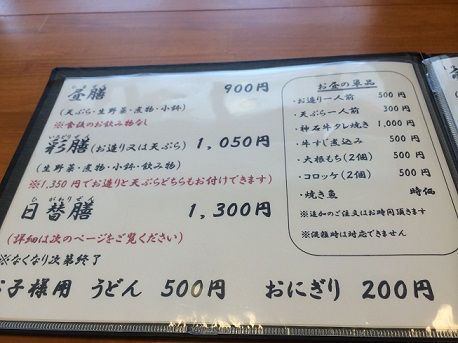 昼膳 900円
(天ぷら・生野菜・煮物・小鉢)
※食後のお飲み物なし
彩膳(お造り又は天ぷら) 1,050円
(生野菜・煮物・小鉢・飲み物)
※1,350円でお造りと天ぷらどちらもお付けできます
日替膳 1,300円
(詳細は次のページをご覧ください)
※なくなり次第終了
お子様用 うどん 500円 おにぎり 200円
お昼の単品
・お造り一人前 500円
・天ぷら一人前 300円
・神石牛タレ焼き 1,000円
・牛すじ煮込み 500円
・大根もち(2個) 500円
・コロッケ(2個) 500円
・焼き魚 時価
※追加のご注文はお時間頂きます
※混雑時は対応できません